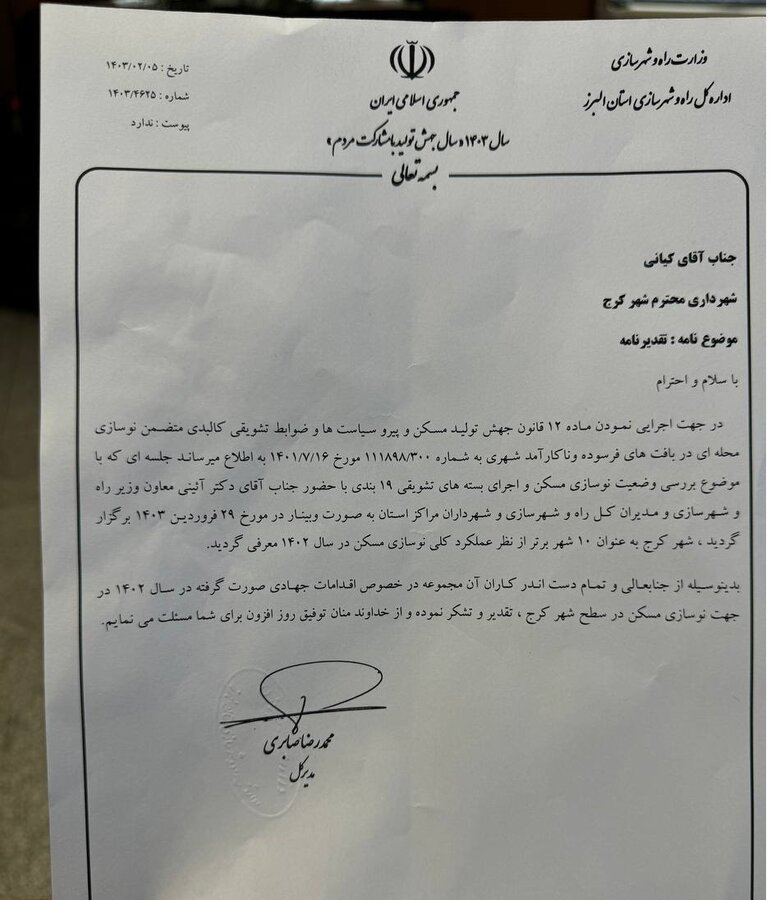 وزارت راه و شهرسازی
اداره کل راه و شهرسازی استان البرز
جمهوری اسلامی ایران
سال ۱۴۰۳ «سال جهش تولید با مشارکت مردم»
بسمه تعالی
تاریخ : ۱۴۰۳/۰۲/۰۵
شماره : ۱۴۰۳/۴۶۲۵
پیوست : ندارد
جناب آقای کیانی
شهرداری محترم شهر کرج
موضوع نامه : تقدیرنامه
با سلام و احترام
در جهت اجرایی نمودن ماده ۱۲ قانون جهش تولید مسکن و پیرو سیاست ها و ضوابط تشویقی کالبدی متضمن نوسازی
محله ای در بافت های فرسوده وناکارآمد شهری به شماره ۱۱۱۸۹۸/۳۰۰ مورخ ۱۴۰۱/۷/۱۶ به اطلاع میرساند جلسه ای که با
موضوع بررسی وضعیت نوسازی مسکن و اجرای بسته های تشویقی ۱۹ بندی با حضور جناب آقای دکتر آئینی معاون وزیر راه
و شهرسازی و مدیران کل راه و شهرسازی و شهرداران مراکز استان به صورت وبینار در مورخ ۲۹ فروردین ۱۴۰۳ برگزار
گردید ، شهر کرج به عنوان ۱۰ شهر برتر از نظر عملکرد کلی نوسازی مسکن در سال ۱۴۰۲ معرفی گردید.
بدینوسیله از جنابعالی و تمام دست اندر کاران آن مجموعه در خصوص اقدامات جهادی صورت گرفته در سال ۱۴۰۲ در
جهت نوسازی مسکن در سطح شهر کرج ، تقدیر و تشکر نموده و از خداوند منان توفیق روز افزون برای شما مسئلت می نمایم.
محمدرضا صابری
مدیرکل